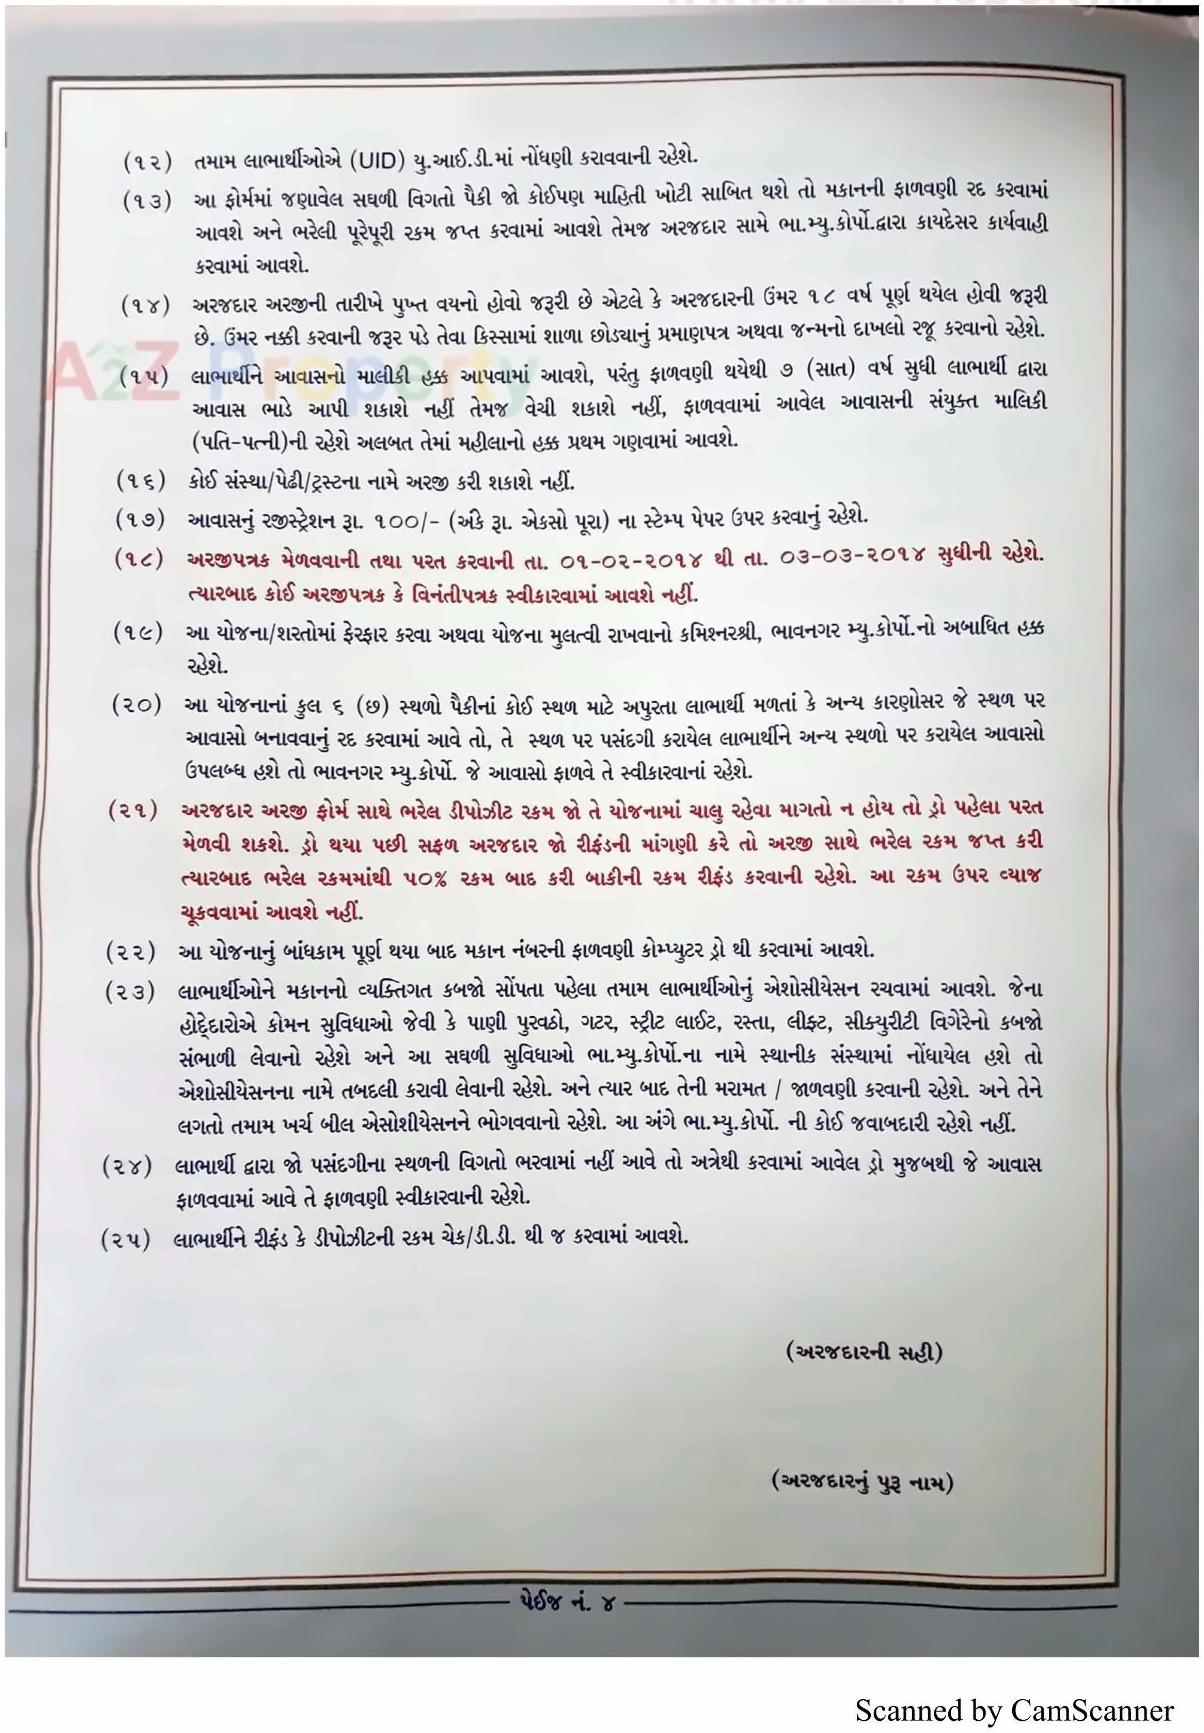 (૧૨) તમામ લાભાર્થીઓએ (UID) યુ.આઈ.ડી.માં નોંધણી કરાવવાની રહેશે.
(૧૩) આ ફોર્મમાં જણાવેલ સઘળી વિગતો પૈકી જો કોઈપણ માહિતી ખોટી સાબિત થશે તો મકાનની ફાળવણી રદ કરવામાં
આવશે અને ભરેલી પૂરેપૂરી રકમ જપ્ત કરવામાં આવશે તેમજ અરજદાર સામે ભા.મ્યુ.કોર્પો.દ્વારા કાયદેસર કાર્યવાહી
કરવામાં આવશે.
(૧૪) અરજદાર અરજીની તારીખે પુખ્ત વયનો હોવો જરૂરી છે એટલે કે અરજદારની ઉંમર ૧૮ વર્ષ પૂર્ણ થયેલ હોવી જરૂરી
છે. ઉંમર નક્કી કરવાની જરૂર પડે તેવા કિસ્સામાં શાળા છોડ્યાનું પ્રમાણપત્ર અથવા જન્મનો દાખલો રજૂ કરવાનો રહેશે.
A2Z Property
(૧૫) લાભાર્થીને આવાસનો માલીકી હક્ક આપવામાં આવશે, પરંતુ ફાળવણી થયેથી ૭ (સાત) વર્ષ સુધી લાભાર્થી દ્વારા
આવાસ ભાડે આપી શકાશે નહીં તેમજ વેચી શકાશે નહીં, ફાળવવામાં આવેલ આવાસની સંયુક્ત માલિકી
(પતિ-પત્ની)ની રહેશે અલબત તેમાં મહીલાનો હક્ક પ્રથમ ગણવામાં આવશે.
(૧૬) કોઈ સંસ્થા/પેઢી/ટ્રસ્ટના નામે અરજી કરી શકાશે નહીં.
(૧૭) આવાસનું રજીસ્ટ્રેશન રૂા. ૧૦૦/- (અંકે રૂા. એકસો પૂરા) ના સ્ટેમ્પ પેપર ઉપર કરવાનું રહેશે.
(૧૮) અરજીપત્રક મેળવવાની તથા પરત કરવાની તા. ૦૧-૦૨-૨૦૧૪ થી તા. ૦૩-૦૩-૨૦૧૪ સુધીની રહેશે.
ત્યારબાદ કોઈ અરજીપત્રક કે વિનંતીપત્રક સ્વીકારવામાં આવશે નહીં.
(૧૯) આ યોજના/શરતોમાં ફેરફાર કરવા અથવા યોજના મુલત્વી રાખવાનો કમિશ્નરશ્રી, ભાવનગર મ્યુ.કોર્પો.નો અબાધિત હક્ક
રહેશે.
(૨૦) આ યોજનાનાં કુલ ૬ (છ) સ્થળો પૈકીનાં કોઈ સ્થળ માટે અપુરતા લાભાર્થી મળતાં કે અન્ય કારણોસર જે સ્થળ પર
આવાસો બનાવવાનું રદ કરવામાં આવે તો, તે સ્થળ પર પસંદગી કરાયેલ લાભાર્થીને અન્ય સ્થળો પર કરાયેલ આવાસો
ઉપલબ્ધ હશે તો ભાવનગર મ્યુ.કોર્પો. જે આવાસો ફાળવે તે સ્વીકારવાનાં રહેશે.
(૨૧) અરજદાર અરજી ફોર્મ સાથે ભરેલ ડીપોઝીટ રકમ જો તે યોજનામાં ચાલુ રહેવા માગતો ન હોય તો ડ્રો પહેલા પરત
મેળવી શકશે. ડ્રો થયા પછી સફળ અરજદાર જો રીફંડની માંગણી કરે તો અરજી સાથે ભરેલ રકમ જપ્ત કરી
ત્યારબાદ ભરેલ રકમમાંથી ૫૦% રકમ બાદ કરી બાકીની રકમ રીફંડ કરવાની રહેશે. આ રકમ ઉપર વ્યાજ
ચૂકવવામાં આવશે નહીં.
(૨૨) આ યોજનાનું બાંધકામ પૂર્ણ થયા બાદ મકાન નંબરની ફાળવણી કોમ્પ્યુટર ડ્રો થી કરવામાં આવશે.
(૨૩) લાભાર્થીઓને મકાનનો વ્યક્તિગત કબજો સોંપતા પહેલા તમામ લાભાર્થીઓનું એશોસીયેસન રચવામાં આવશે. જેના
હોદ્દેદારોએ કોમન સુવિધાઓ જેવી કે પાણી પુરવઠો, ગટર, સ્ટ્રીટ લાઈટ, રસ્તા, લીફ્ટ, સીક્યુરીટી વિગેરેનો કબજો
સંભાળી લેવાનો રહેશે અને આ સઘળી સુવિધાઓ ભા.મ્યુ.કોર્પો.ના નામે સ્થાનીક સંસ્થામાં નોંધાયેલ હશે તો
એશોસીયેસનના નામે તબદલી કરાવી લેવાની રહેશે. અને ત્યાર બાદ તેની મરામત / જાળવણી કરવાની રહેશે. અને તેને
લગતો તમામ ખર્ચ બીલ એસોશીયેસનને ભોગવવાનો રહેશે. આ અંગે ભા.મ્યુ.કોર્પો. ની કોઈ જવાબદારી રહેશે નહીં.
(૨૪) લાભાર્થી દ્વારા જો પસંદગીના સ્થળની વિગતો ભરવામાં નહીં આવે તો અત્રેથી કરવામાં આવેલ ડ્રો મુજબથી જે આવાસ
ફાળવવામાં આવે તે ફાળવણી સ્વીકારવાની રહેશે.
(૨૫) લાભાર્થીને રીફંડ કે ડીપોઝીટની રકમ ચેક/ડી.ડી. થી જ કરવામાં આવશે.
(અરજદારની સહી)
(અરજદારનું પુરૂ નામ)
પેઈજ નં. ૪
Scanned by CamScanner